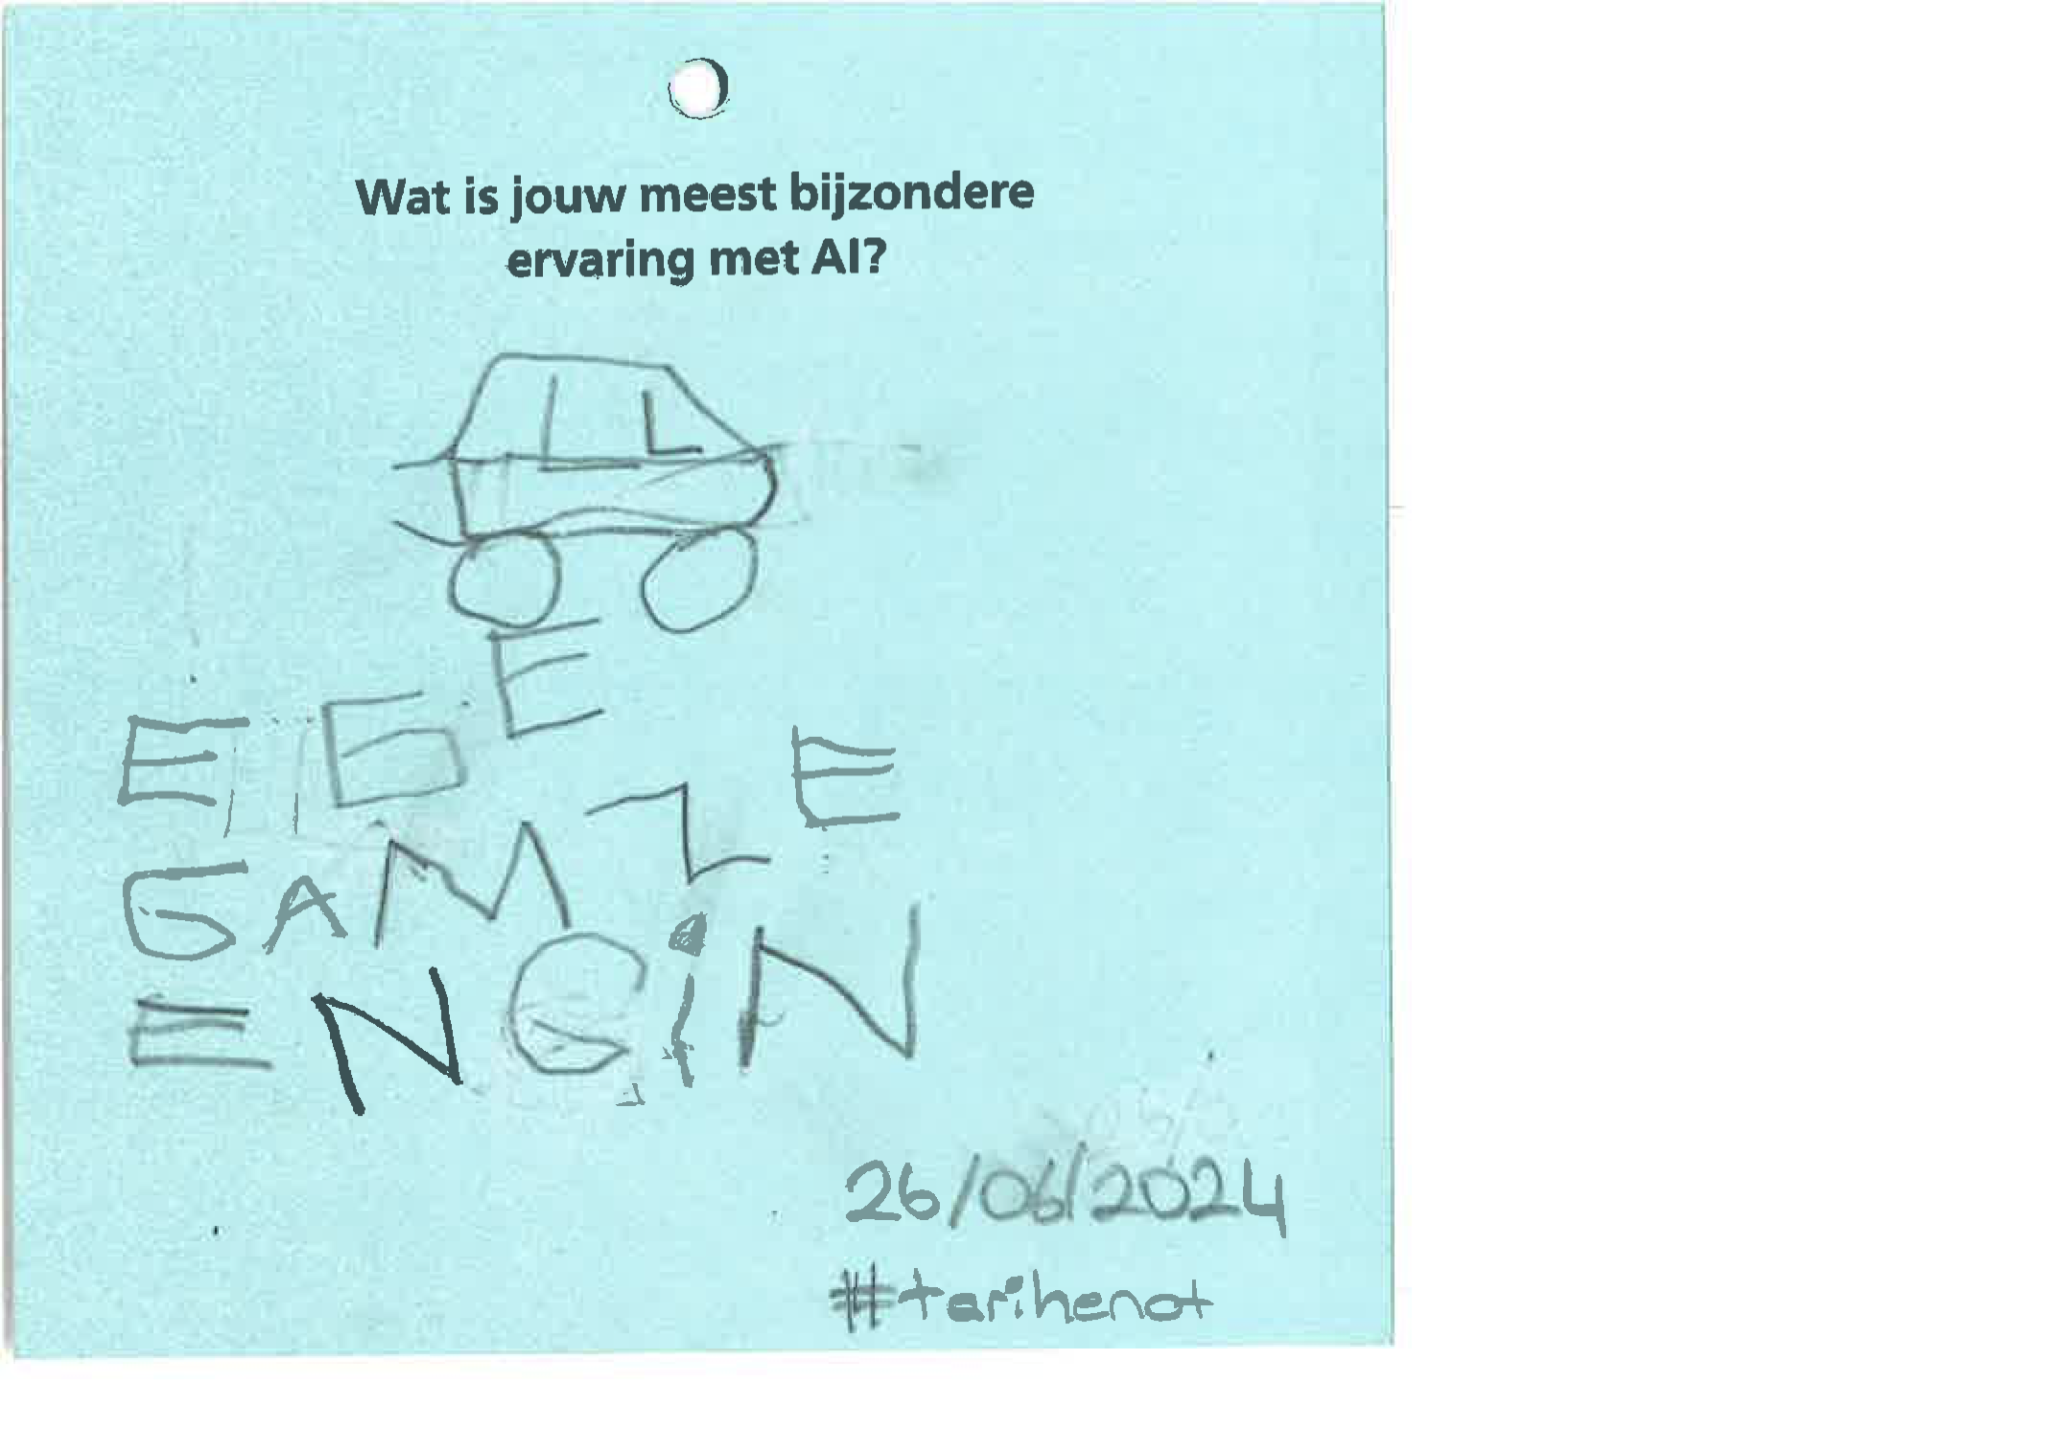 Wat is jouw meest bijzondere
ervaring met AI?
EGE
GAMZE
ENGİN
26/06/2024
#tarihenot